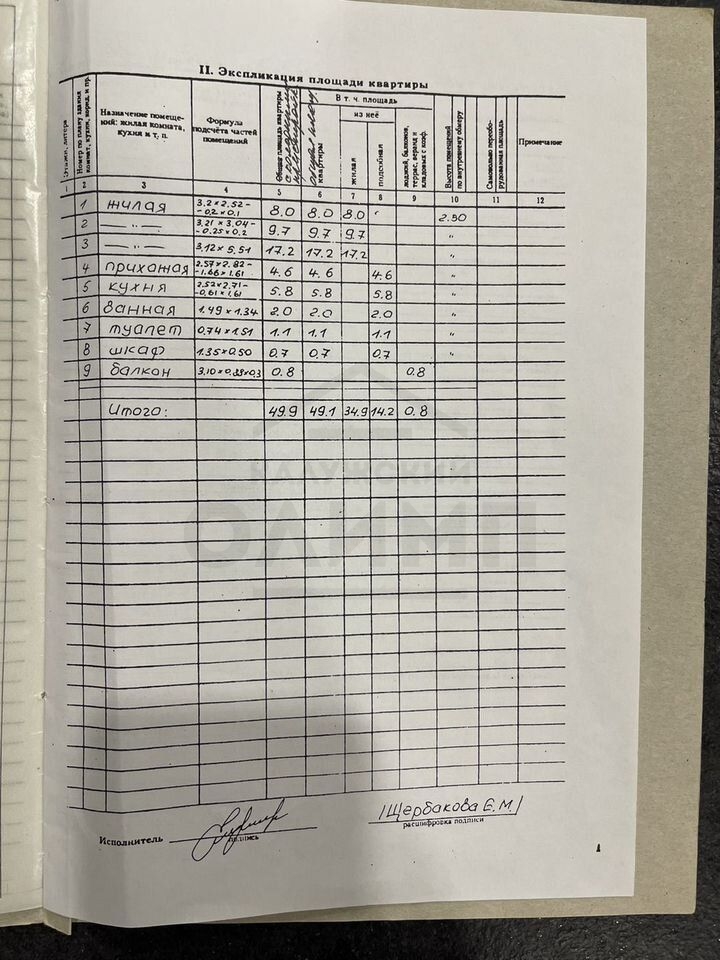 II. Экспликация площади квартиры
Этажи, литера
Номер по плану здания комнат, кухни, корид. и пр.
Назначение помеще-
ний: жилая комната,
кухня и т. п.
Формула
подсчёта частей
помещений
Общая площадь квартиры
квартиры
В т. ч. площадь
из неё
жилая
подсобная
лоджий, балконов,
террас, веранд и
кладовых с коэф.
Высота помещений
по внутреннему обмеру
Самовольно переобо-
рудованная площадь
Примечание
1 2 3 4 5 6 7 8 9 10 11 12
1 жилая 3.2×2.52- -0.2×0.1 8.0 8.0 8.0 2.50
2 —„— 3.21×3.04- -0.25×0.2 9.7 9.7 9.7 "
3 —„— 3.12×5.51 17.2 17.2 17.2 "
4 прихожая 2.57×2.82- -1.66×1.61 4.6 4.6 4.6 "
5 кухня 2.52×2.71- -0.61×1.61 5.8 5.8 5.8 "
6 ванная 1.49×1.34 2.0 2.0 2.0 "
7 туалет 0.74×1.51 1.1 1.1 1.1 "
8 шкаф 1.35×0.50 0.7 0.7 0.7 "
9 балкон 3,10×0,89×0,3 0.8 0.8
Итого: 49.9 49.1 34.9 14.2 0.8
КАЛУЖСКИЙ
ОЛИМП
Исполнитель
подпись
/Щербакова Е.М./
расшифровка подписи